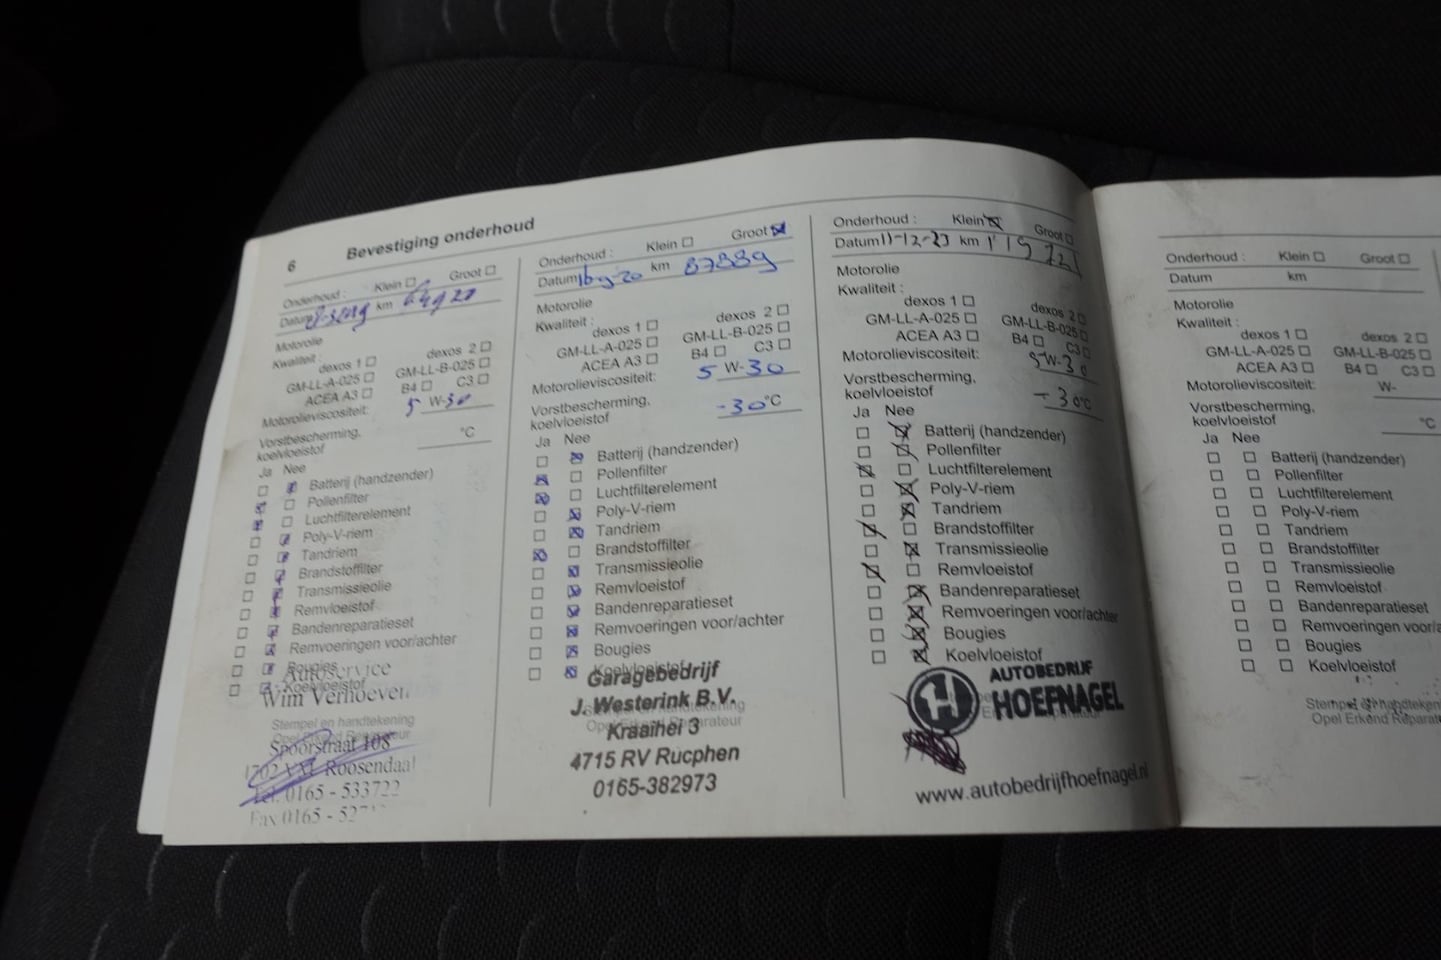 6 Bevestiging onderhoud
Onderhoud : Klein Groot
Datum km
Motorolie
Kwaliteit :
dexos 1 dexos 2
GM-LL-A-025 GM-LL-B-025
ACEA A3 B4 C3
Motorolieviscositeit: 5 W-30
Vorstbescherming,
koelvloeistof °C
Ja Nee
Batterij (handzender)
Pollenfilter
Luchtfilterelement
Poly-V-riem
Tandriem
Brandstoffilter
Transmissieolie
Remvloeistof
Bandenreparatieset
Remvoeringen voor/achter
Bougies
Koelvloeistof
Autoservice
Wim Verhoeven
Stempel en handtekening
Opel Erkend Reparateur
Spoorstraat 108
Roosendaal
Tel. 0165 - 533722
Fax 0165 -
Onderhoud : Klein Groot
Datum 16-9-20 km 87889
Motorolie
Kwaliteit :
dexos 1 dexos 2
GM-LL-A-025 GM-LL-B-025
ACEA A3 B4 C3
Motorolieviscositeit: 5 W-30
Vorstbescherming,
koelvloeistof -30°C
Ja Nee
Batterij (handzender)
Pollenfilter
Luchtfilterelement
Poly-V-riem
Tandriem
Brandstoffilter
Transmissieolie
Remvloeistof
Bandenreparatieset
Remvoeringen voor/achter
Bougies
Koelvloeistof
Garagebedrijf
J. Westerink B.V.
Stempel en handtekening
Opel Erkend Reparateur
Kraaihei 3
4715 RV Rucphen
0165-382973
Onderhoud : Klein Groot
Datum 11-12-23 km
Motorolie
Kwaliteit :
dexos 1 dexos 2
GM-LL-A-025 GM-LL-B-025
ACEA A3 B4 C3
Motorolieviscositeit: 5W-30
Vorstbescherming,
koelvloeistof -30°C
Ja Nee
Batterij (handzender)
Pollenfilter
Luchtfilterelement
Poly-V-riem
Tandriem
Brandstoffilter
Transmissieolie
Remvloeistof
Bandenreparatieset
Remvoeringen voor/achter
Bougies
Koelvloeistof
H AUTOBEDRIJF
HOEFNAGEL
www.autobedrijfhoefnagel.nl
Onderhoud : Klein Groot
Datum km
Motorolie
Kwaliteit :
dexos 1 dexos 2
GM-LL-A-025 GM-LL-B-025
ACEA A3 B4 C3
Motorolieviscositeit: W-
Vorstbescherming,
koelvloeistof °C
Ja Nee
Batterij (handzender)
Pollenfilter
Luchtfilterelement
Poly-V-riem
Tandriem
Brandstoffilter
Transmissieolie
Remvloeistof
Bandenreparatieset
Remvoeringen voor/a
Bougies
Koelvloeistof
Stempel en handteken
Opel Erkend Reparate